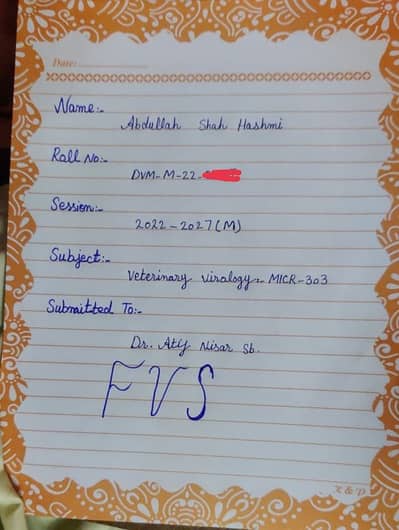 Date:
Name:-
Abdullah Shah Hashmi
Roll No:-
DVM-M-22-
Session:-
2022-2027(M)
Subject:-
Veterinary virology:- MICR-303
Submitted To:-
Dr. Atif Nisar Sb.
FVS